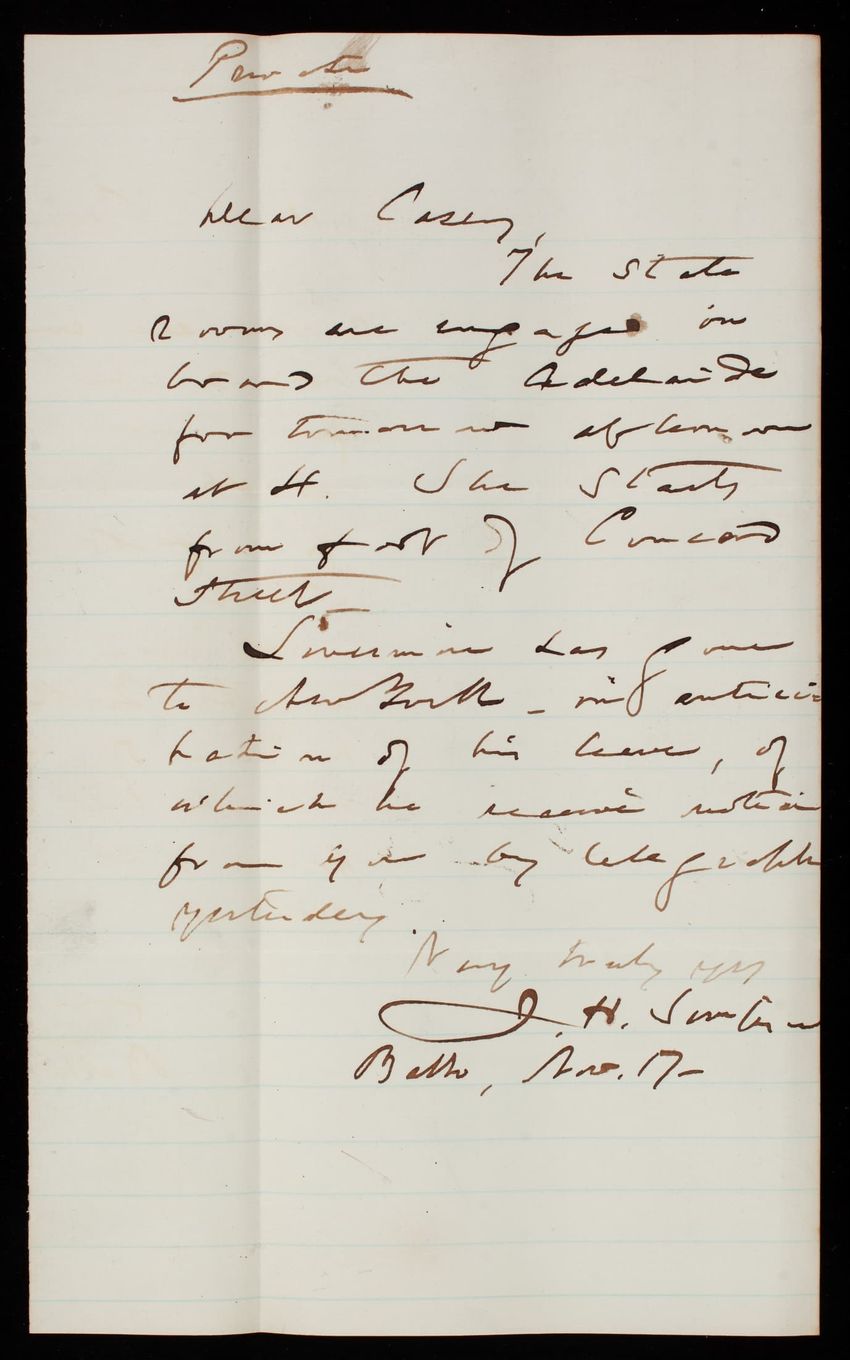 Private
Dear Casey,
The State
Rooms are engaged on
board the Adelaide
for tomorrow afternoon
at 4. She starts
from foot of Concord
Street
Livermore has gone
to New York - in antici
pation of his leave, of
which he receive notice
from you by telegraph
yesterday.
Very truly yrs
J. H. Simpson
Balto, Nov. 17-